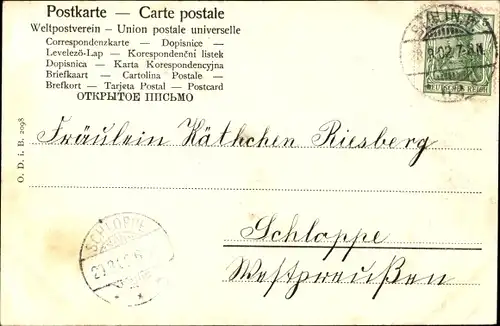 Postkarte — Carte postale
Weltpostverein – Union postale universelle
Correspondenzkarte — Dopisnice —
Levelezö-Lap — Korespondenční listek
Dopisnica — Karta Korespondencyjna
Briefkaart — Cartolina Postale —
Brefkort – Tarjeta Postal – Postcard
ОТКРЫТОЕ ПИСЬМО
BERLIN W.
02 7-8 N
DEUTSCHES REICH
O. D. i. B. 2098
Fräulein Käthchen Riesberg
Schloppe
Westpreußen
SCHLOPPE